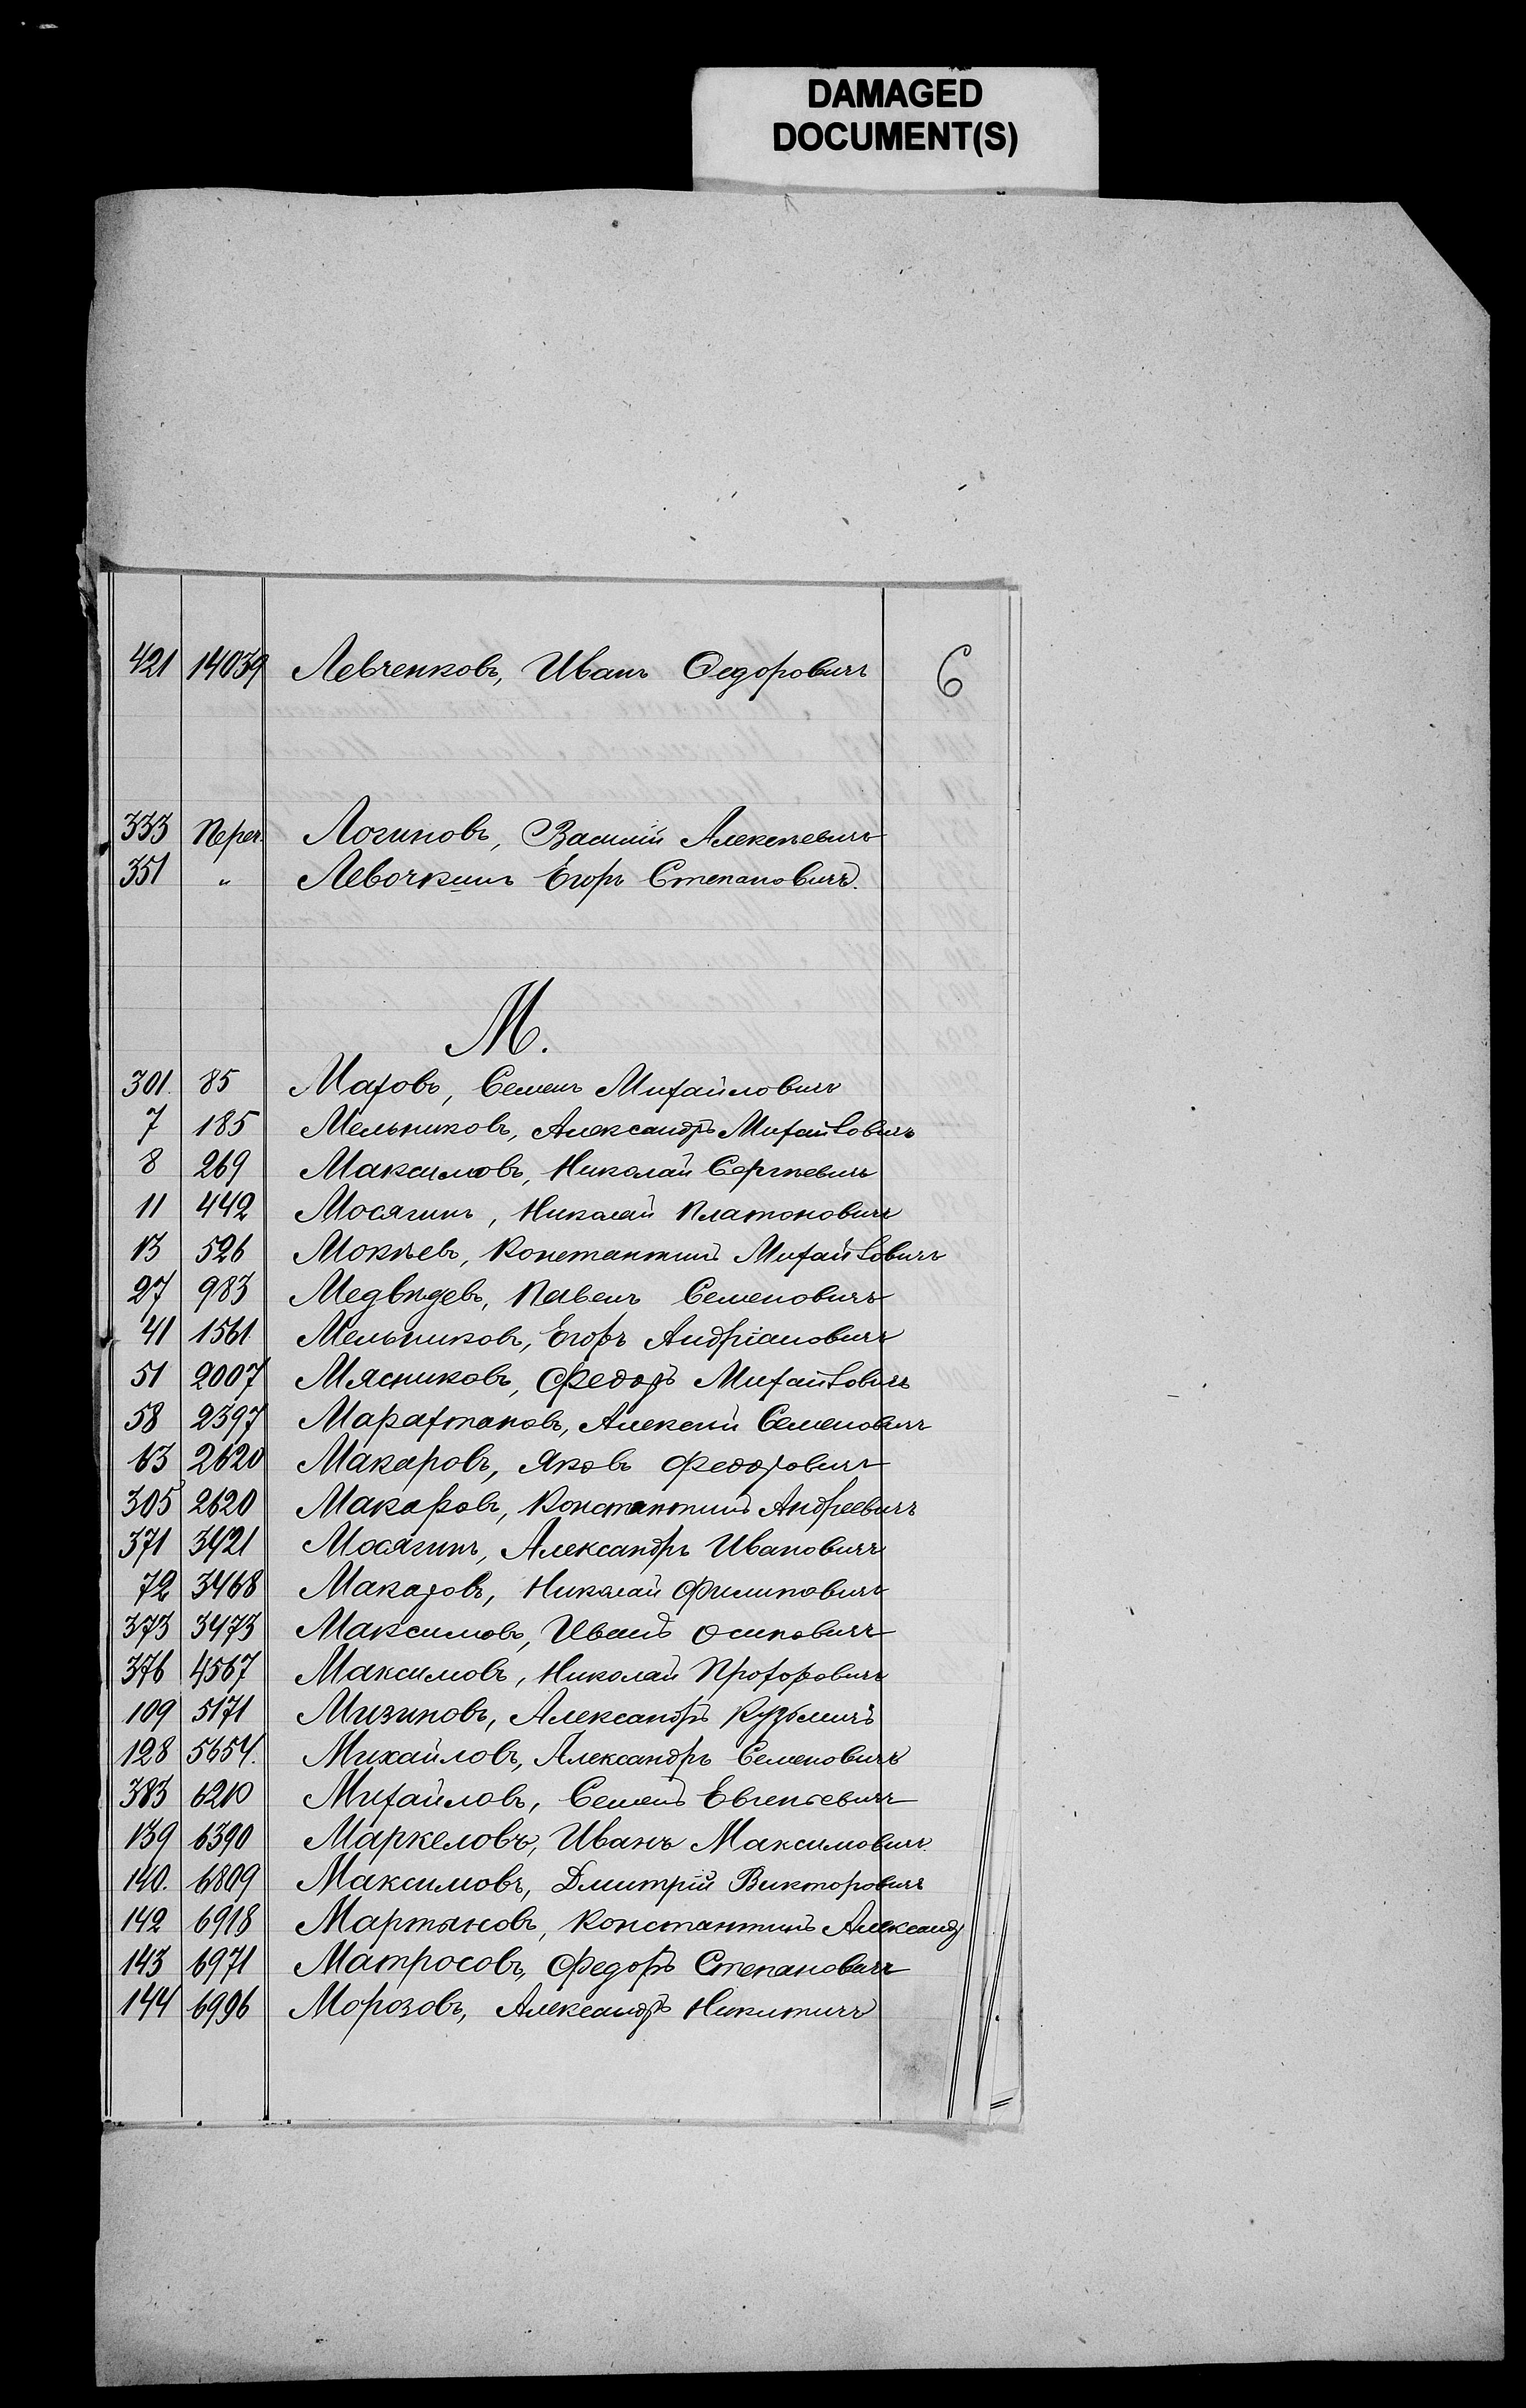 DAMAGED
DOCUMENT(S)
421 14039 Левченковъ, Иванъ Ѳедоровичъ 6
333 Переч. Логиновъ, Василій Алексѣевичъ
351 " Левочкинъ Егоръ Степановичъ.
М.
301. 85 Маховъ, Семенъ Михайловичъ
7 185 Мельниковъ, Александръ Михайловичъ
8 269 Максимовъ, Николай Сергѣевичъ
11 442 Мосягинъ, Николай Платоновичъ
13 526 Мокѣевъ, Константинъ Михайловичъ
27 983 Медвѣдевъ, Павелъ Семеновичъ
41 1561 Мельниковъ, Егоръ Андріановичъ
51 2007 Мясниковъ, Федоръ Михайловичъ
58 2397 Марахтановъ, Алексѣй Семеновичъ
63 2620 Макаровъ, Яковъ Федоровичъ
305 2620 Макаровъ, Константинъ Андреевичъ
371 3421 Мосягинъ, Александръ Ивановичъ
72 3468 Макаровъ, Николай Филиповичъ
373 3473 Максимовъ, Иванъ Осиповичъ
376 4567 Максимовъ, Николай Прохоровичъ
109 5171 Мизиновъ, Александръ Кузьмичъ
128 5654. Михайловъ, Александръ Семеновичъ
383 6210 Михайловъ, Семенъ Евгеньевичъ
139 6390 Маркеловъ, Иванъ Максимовичъ.
140. 6809 Максимовъ, Дмитрій Викторовичъ
142 6918 Мартыновъ, Константинъ Александр
143 6971 Матросовъ, Федоръ Степановичъ
144 6996 Морозовъ, Александръ Никитичъ